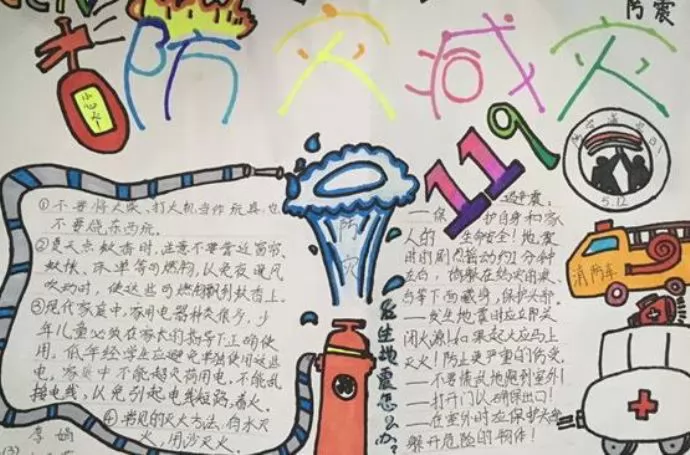 防震
防灾减灾
小心火
119
①不要将火柴、打火机当作玩具，也
不要烧东西玩。
②夏天点蚊香时，注意不要靠近窗帘、
蚊帐、床单等可燃物，以免夜晚风
吹动时，使这些可燃物飘到蚊香上。
③现代家庭中，家用电器种类很多，少
年儿童必须在家长的指导下正确使
用。低年级学生应避免单独使用这些电
，家庭中不能超负荷用电，不能乱
接电线，以免引起电线短路，着火。
④常见的灭火方法，向水灭
火，用沙灭火。
李娟
(3)
防灾
发生地震怎么办？
遇地震：
——保护自身和家
人的生命安全！地震
时的剧烈震动约1分钟
左右，
下面藏身，保护头部。
——发生地震时应立即关
闭火源！如果起火应马上
灭火！防止更严重的伤害。
——不要慌乱地跑到室外！
——打开门以确保出口！
——在室外时应保护头部
躲开危险的物体！
5.12
消防车